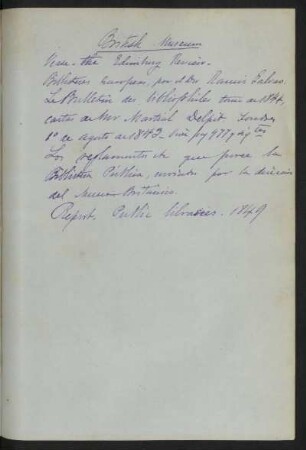 British Museum
Vease - the Edimburg Review -
Bibliotecas Europeas, por el Dr. Ramis Galvao.
Le Bulletin des bibliophiles tomo de 1844,
cartas de Mr Martial Delpit Londres
1º de agosto de 1842 pag 977 y sigtes
Los reglamentos etc que posee la
Biblioteca Publica, enviados por la direccion
del Museo Britanico.
Report. Public libraries. 1849